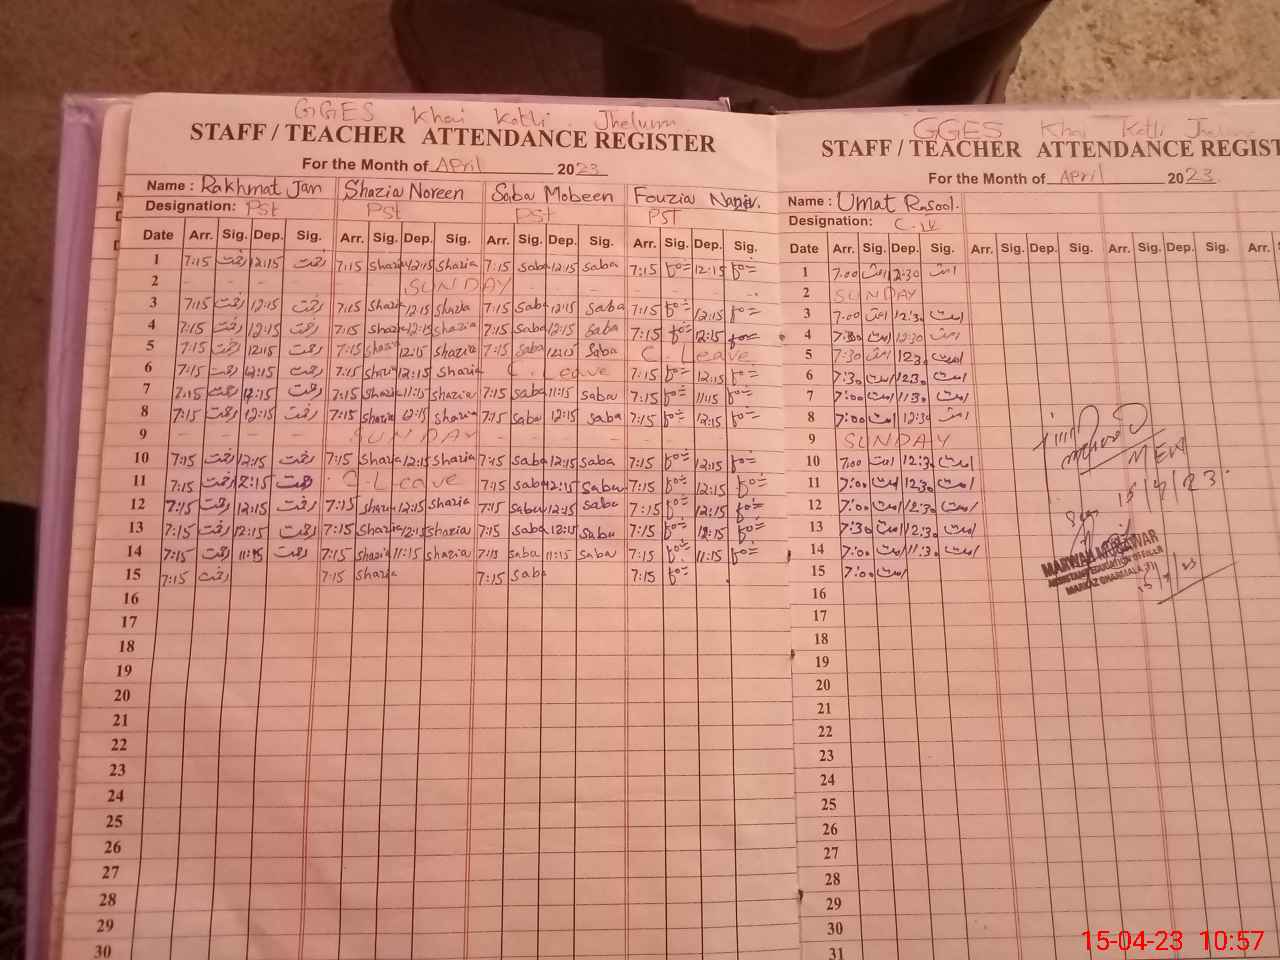 GGES Khai Kotli Jhelum.
STAFF / TEACHER ATTENDANCE REGISTER
For the Month of April 2023
Name : Rakhmat Jan Shazia Noreen Saba Mobeen Fouzia
Designation: Pst Pst Pst PST
Date Arr. Sig. Dep. Sig. Arr. Sig. Dep. Sig. Arr. Sig. Dep. Sig. Arr. Sig. Dep. Sig.
1 7:15 رفعت 12:15 رفعت 7:15 Shazia 12:15 Shazia 7:15 saba 12:15 saba 7:15 12:15
2 SUNDAY
3 7:15 رفعت 12:15 رفعت 7:15 Shazia 12:15 Shazia 7:15 saba 12:15 saba 7:15 12:15
4 7:15 رفعت 12:15 رفعت 7:15 Shazia 12:15 Shazia 7:15 saba 12:15 saba 7:15 12:15
5 7:15 رفعت 12:15 رفعت 7:15 Shazia 12:15 Shazia 7:15 Saba 12:15 Saba C. Leave
6 7:15 رفعت 12:15 رفعت 7:15 Shazia 12:15 Shazia C. Leave 7:15 12:15
7 7:15 رفعت 12:15 رفعت 7:15 Shazia 11:15 Shazia 7:15 saba 11:15 saba 7:15 11:15
8 7:15 رفعت 12:15 رفعت 7:15 Shazia 12:15 Shazia 7:15 saba 12:15 saba 7:15 12:15
9 SUNDAY
10 7:15 رفعت 12:15 رفعت 7:15 Shazia 12:15 Shazia 7:15 saba 12:15 saba 7:15 12:15
11 7:15 رفعت 12:15 رفعت C-Leave 7:15 saba 12:15 saba 7:15 12:15
12 7:15 رفعت 12:15 رفعت 7:15 Shazia 12:15 Shazia 7:15 saba 12:15 saba 7:15 12:15
13 7:15 رفعت 12:15 رفعت 7:15 Shazia 12:15 Shazia 7:15 saba 12:15 saba 7:15 12:15
14 7:15 رفعت 11:15 رفعت 7:15 Shazia 11:15 Shazia 7:15 saba 11:15 saba 7:15 11:15
15 7:15 رفعت 7:15 Shazia 7:15 saba 7:15
16
17
18
19
20
21
22
23
24
25
26
27
28
29
30
GGES Khai Kotli Jhelum
STAFF / TEACHER ATTENDANCE REGIST
For the Month of April 2023.
Name : Umat Rasool.
Designation:
Date Arr. Sig. Dep. Sig. Arr. Sig. Dep. Sig. Arr. Sig. Dep. Sig. Arr. S
1 7:00 امت 12:30 امت
2 SUNDAY
3 7:00 امت 12:30 امت
4 7:30 امت 12:30 امت
5 7:30 امت 12:30 امت
6 7:30 امت 12:30 امت
7 7:00 امت 11:30 امت
8 7:00 امت 12:30 امت
9 SUNDAY
10 7:00 امت 12:30 امت
11 7:00 امت 12:30 امت
12 7:00 امت 12:30 امت
13 7:30 امت 12:30 امت
14 7:00 امت 11:30 امت
15 7:00 امت
16
17
18
19
20
21
22
23
24
25
26
27
28
29
30
31
MEA
15/4/23.
ASSISTANT EDUCATION OFFICER
15-04-23 10:57